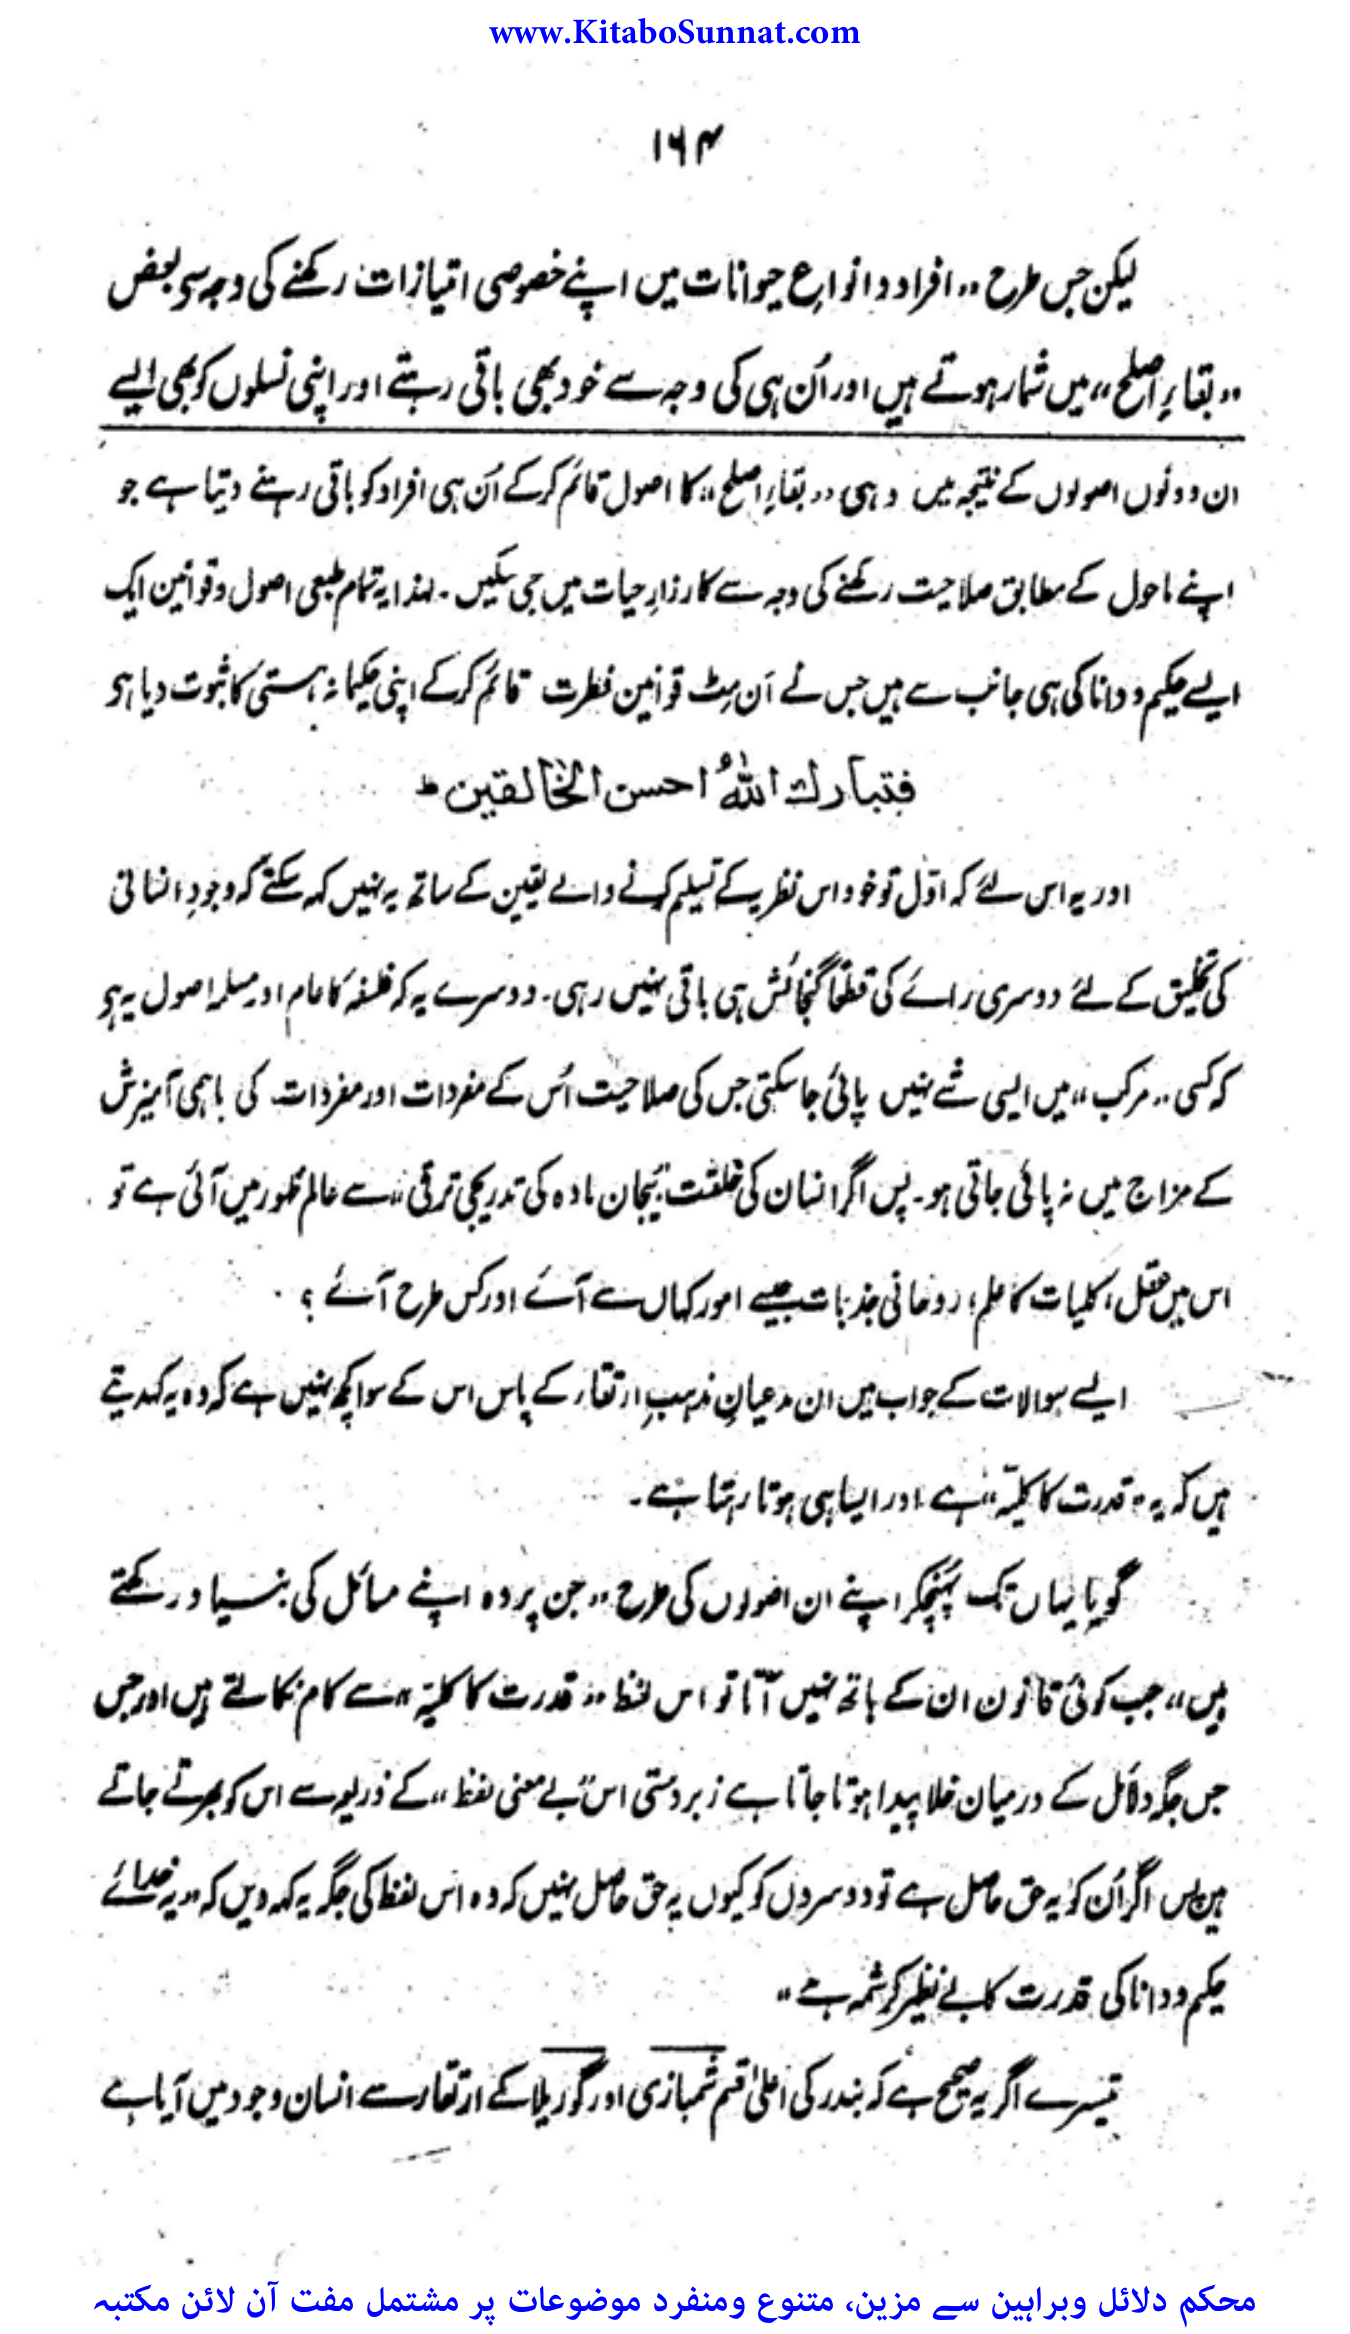 www.KitaboSunnat.com
۱۶۴
لیکن جس طرح ”افراد و انواعِ حیوانات میں اپنے خصوصی امتیازات رکھنے کی وجہ سی بعض
”بقاءِ اصلح“ میں شمار ہوتے ہیں اور اُن ہی کی وجہ سے خود بھی باقی رہتے اور اپنی نسلوں کو بھی ایسے
ان دونوں اصولوں کے نتیجہ میں وہی ”بقاءِ اصلح“ کا اصول قائم کرکے اُن ہی افراد کو باقی رہنے دیتا ہے جو
اپنے ماحول کے مطابق صلاحیت رکھنے کی وجہ سے کارزارِ حیات میں جی سکیں۔ لہذا یہ تمام طبعی اصول و قوانین ایک
ایسے حکیم و دانا کی ہی جانب سے ہیں جس نے اَن مِٹ قوانین فطرت قائم کرکے اپنی حکیمانہ ہستی کا ثبوت دیا ہو
فتبارك اللهُ احسن الخالقین ط
اور یہ اس لئے کہ اوّل تو خود اس نظریہ کے تسلیم کرنے والے یقین کے ساتھ یہ نہیں کہہ سکتے کہ وجودِ انسانی
کی تخلیق کے لئے دوسری رائے کی قطعاً گنجائش ہی باقی نہیں رہی۔ دوسرے یہ کہ فلسفہ کا عام اور مسلمہ اصول یہ ہو
کہ کسی ”مرکب“ میں ایسی شے نہیں پائی جا سکتی جس کی صلاحیت اُس کے مفردات اور مفردات کی باہمی آمیزش
کے مزاج میں نہ پائی جاتی ہو۔ پس اگر انسان کی خلقت ”بیجان مادہ کی تدریجی ترقی“ سے عالم ظہور میں آئی ہے تو
اس میں عقل، کلیات کا علم، روحانی جذبات جیسے امور کہاں سے آئے اور کس طرح آئے ؟
ایسے سوالات کے جواب میں ان مدعیانِ مذہبِ ارتقاء کے پاس اس کے سوا کچھ نہیں ہے کہ وہ یہ کہدیتے
ہیں کہ یہ ”قدرت کا کلیّہ“ ہے اور ایسا ہی ہوتا رہتا ہے۔
گویا یہاں تک پہنچکر اپنے ان اصولوں کی طرح ”جن پر وہ اپنے مسائل کی بنیاد رکھتے
ہیں“ جب کوئی قانون ان کے ہاتھ نہیں آتا تو اس لفظ ”قدرت کا کلیّہ“ سے کام نکالتے ہیں اور جس
جس جگہ دلائل کے درمیان خلا پیدا ہوتا جاتا ہے زبردستی اس ”بے معنی لفظ“ کے ذریعہ سے اس کو بھرتے جاتے
ہیں پس اگر اُن کو یہ حق حاصل ہے تو دوسروں کو کیوں یہ حق حاصل نہیں کہ وہ اس لفظ کی جگہ یہ کہہ دیں کہ ”یہ خدائے
حکیم و دانا کی قدرت کا بے نظیر کرشمہ ہے“
تیسرے اگر یہ صحیح ہے کہ بندر کی اعلیٰ قسم شمبازی اور گوریلا کے ارتقاء سے انسان وجود میں آیا ہے
محکم دلائل وبراہین سے مزین، متنوع ومنفرد موضوعات پر مشتمل مفت آن لائن مکتبہ